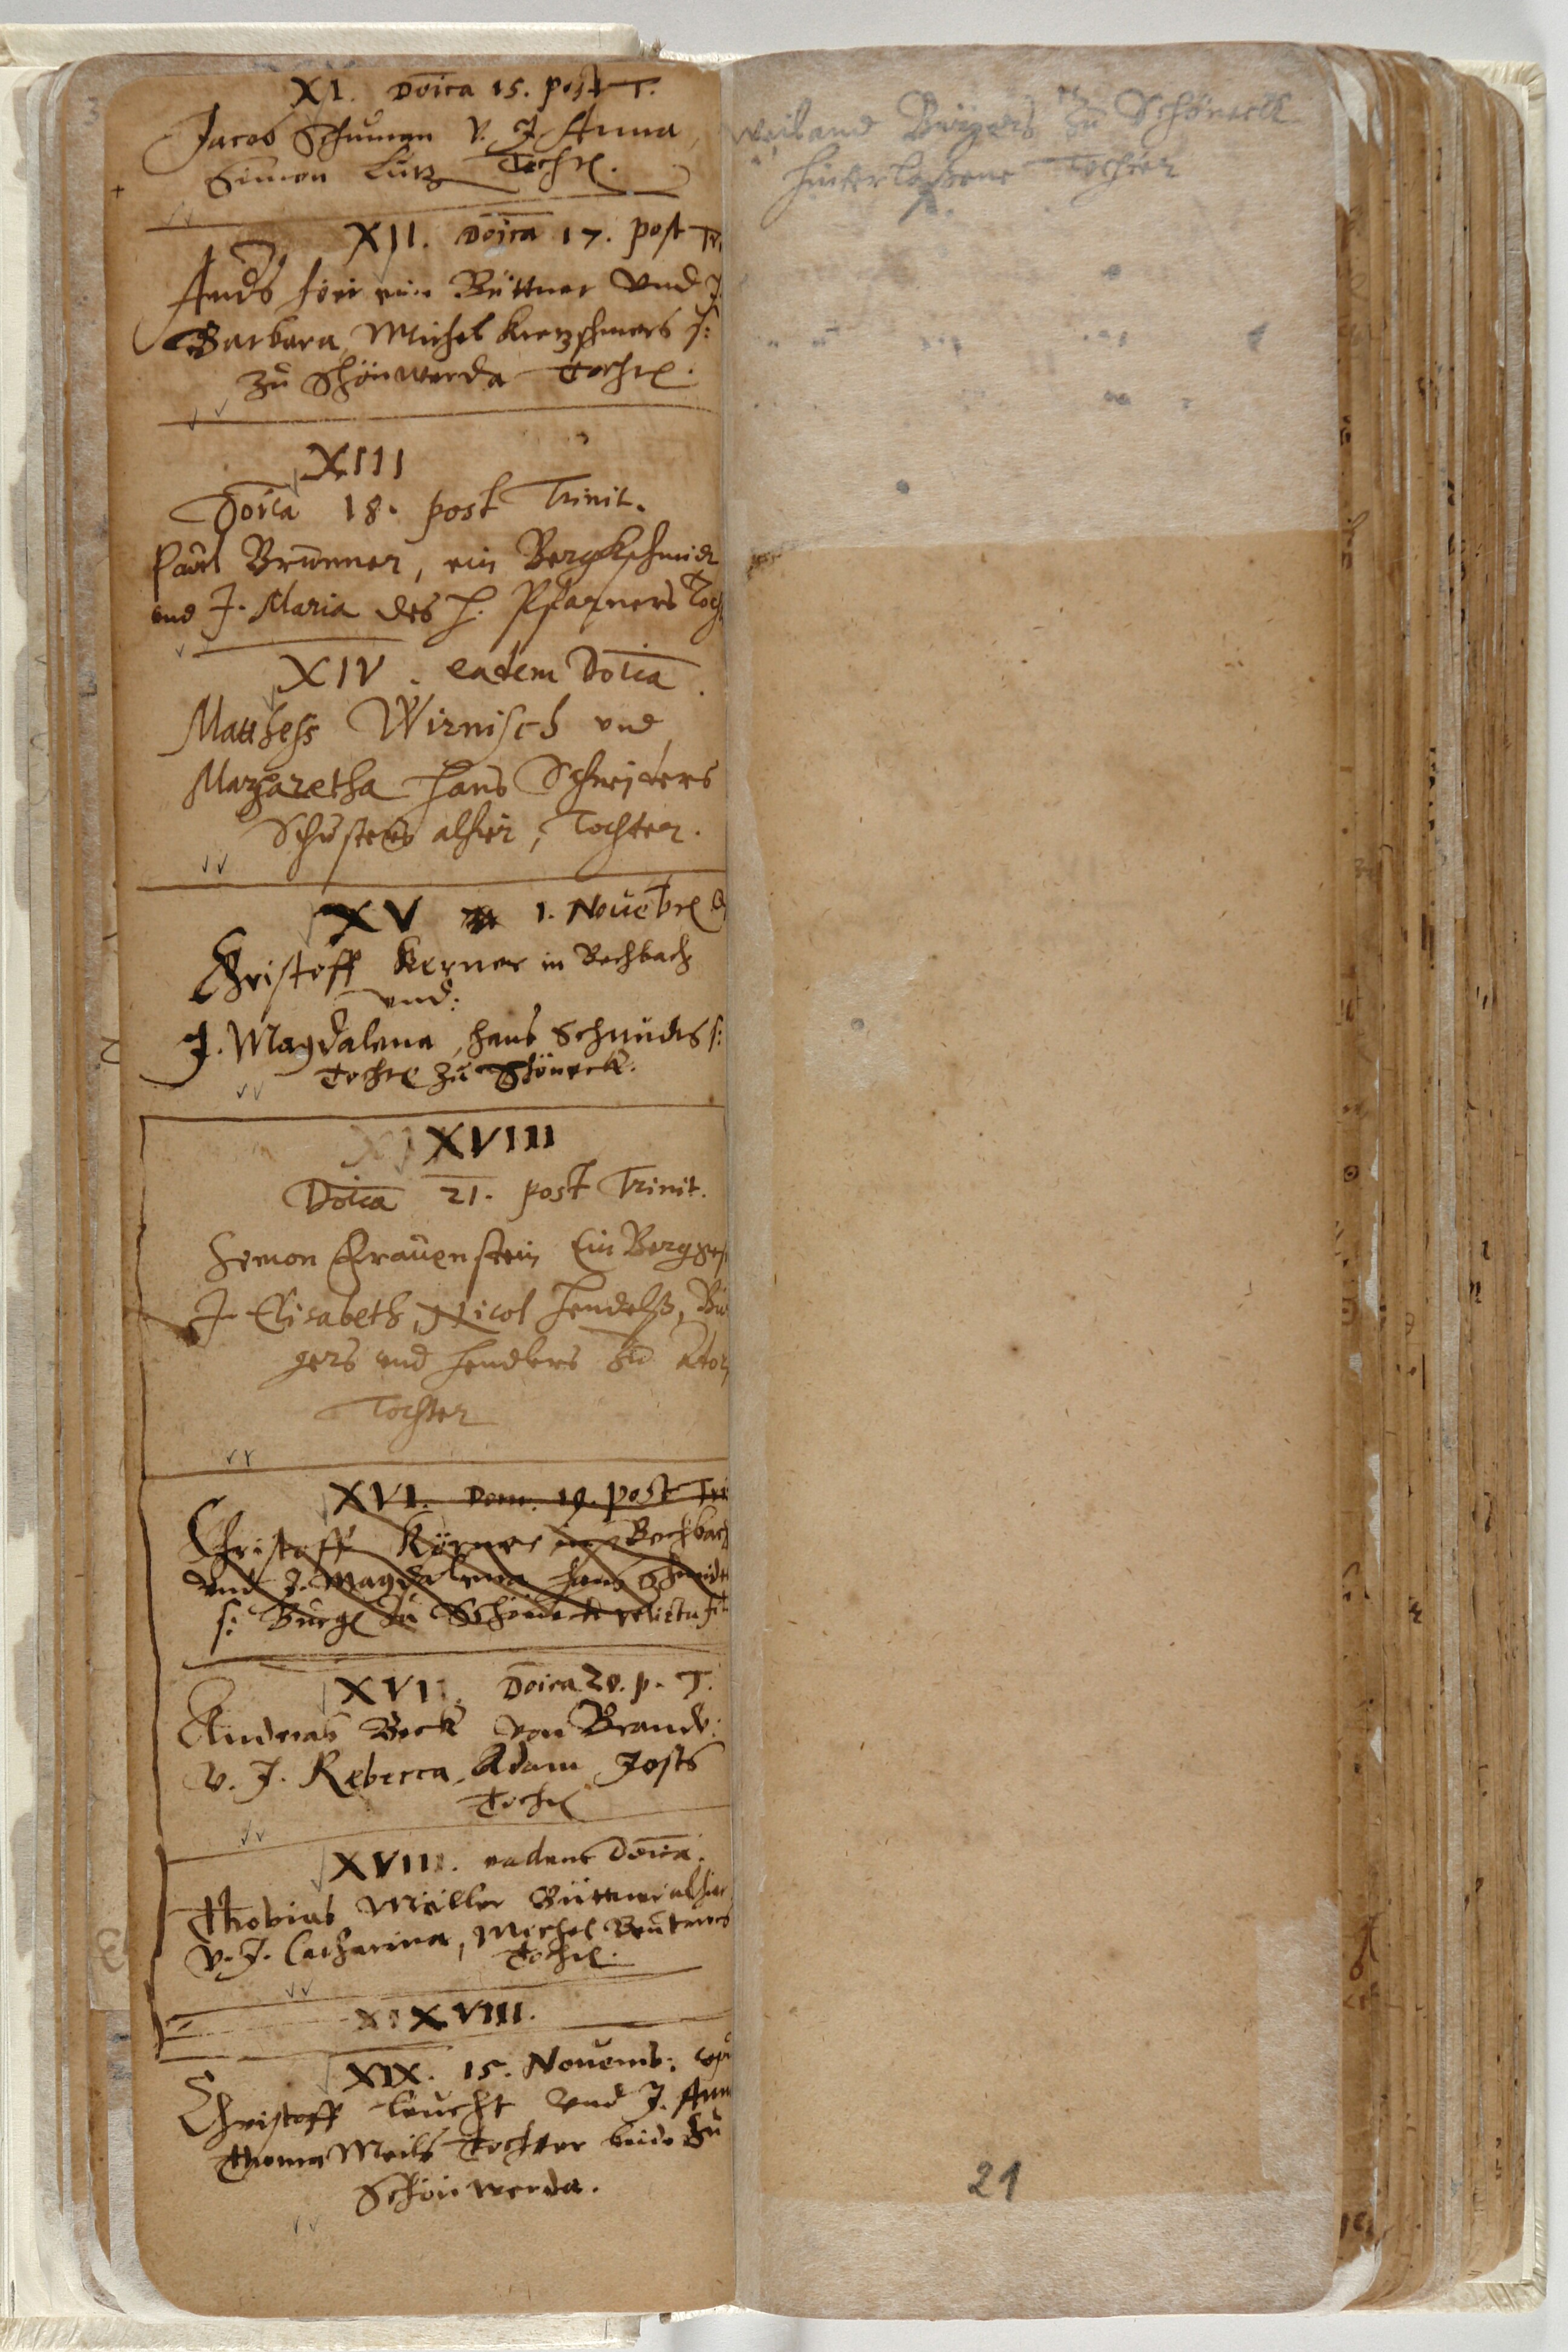 XI. Doica 15. post T.
Jacob Schuman v. J. Anna,
Simon Lutz Tochter.
XII. Doica 17. post Tr
Ands ein Büttner vnd J.
Barbara, Michel Kretzschmers s:
zu Schönwerda Tochter.
XIII
Doica 18. post Trinit.
Paul Brunner, ein Bergkschmidt
vnd J. Maria des H. Pfarners Toch
XIV. eadem Doica.
Matthess Wirnisch vnd
Margaretha Hans Schneiders
Schusters alhier, Tochter.
XV 1. Nouebr
Christoff Kerner in Bechbach
vnd:
J. Magdalena, Hans Schmides s:
Tochter zu Schöneck.
XVIII
Doica 21. post Trinit.
Simon Frauenstein Ein Bergges
J Elisabeth, Nicol Hendels, Bür
gers vnd Hendlers zu Ador
Tochter
XVI. Dom. 19. post Tri
Christoff Körner im Bechbach
vnd J. Magdalena Hans Schmidts
s: Burgers zu Schöneck relicta fil
XVII. Doica 20. p. T.
Andreas Beck von Brand:
v. J. Rebecca, Adam Josts
Tochter
XVIII. eadem Doica.
Thobias Müller Büttner alhier
v. J. Catharina, Michel Beutners
Tochter.
XVIII.
XIX. 15. Nouemb: cop
Christoff Leucht vnd J. Ann
Thoma Meils Tochter beide zu
Schönwerda.
weiland Bürgers zu Schöneck
hinterlaßene Tochter
21